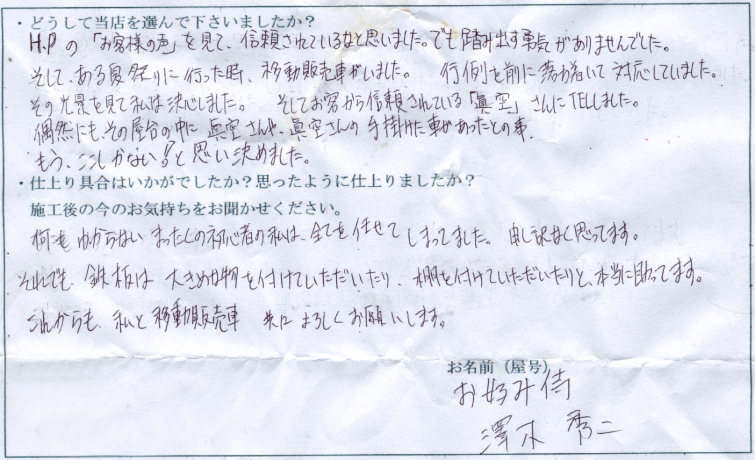 ・どうして当店を選んで下さいましたか？
H.Pの「お客様の声」を見て、信頼されているなと思いました。でも踏み出す勇気がありませんでした。
そして、ある夏祭りに行った時、移動販売車がいました。 行列を前に落ち着いて対応していました。
その光景を見て私は決心しました。 そしてお客から信頼されている「眞空」さんにTELしました。
偶然にもその屋台の中に眞空さんや、眞空さんの手掛けた車があったとの事、
もう、ここしかない！と思い決めました。
・仕上り具合はいかがでしたか？思ったように仕上りましたか？
施工後の今のお気持ちをお聞かせください。
何もわからないまったくの初心者の私は、全てを任せてしまってました。 申し訳なく思ってます。
それでも、鉄板は大きめの物を付けていただいたり、棚を付けていただいたりと、本当に助ってます。
これからも、私と移動販売車 共によろしくお願いします。
お名前（屋号）
お好み侍
澤木 秀二